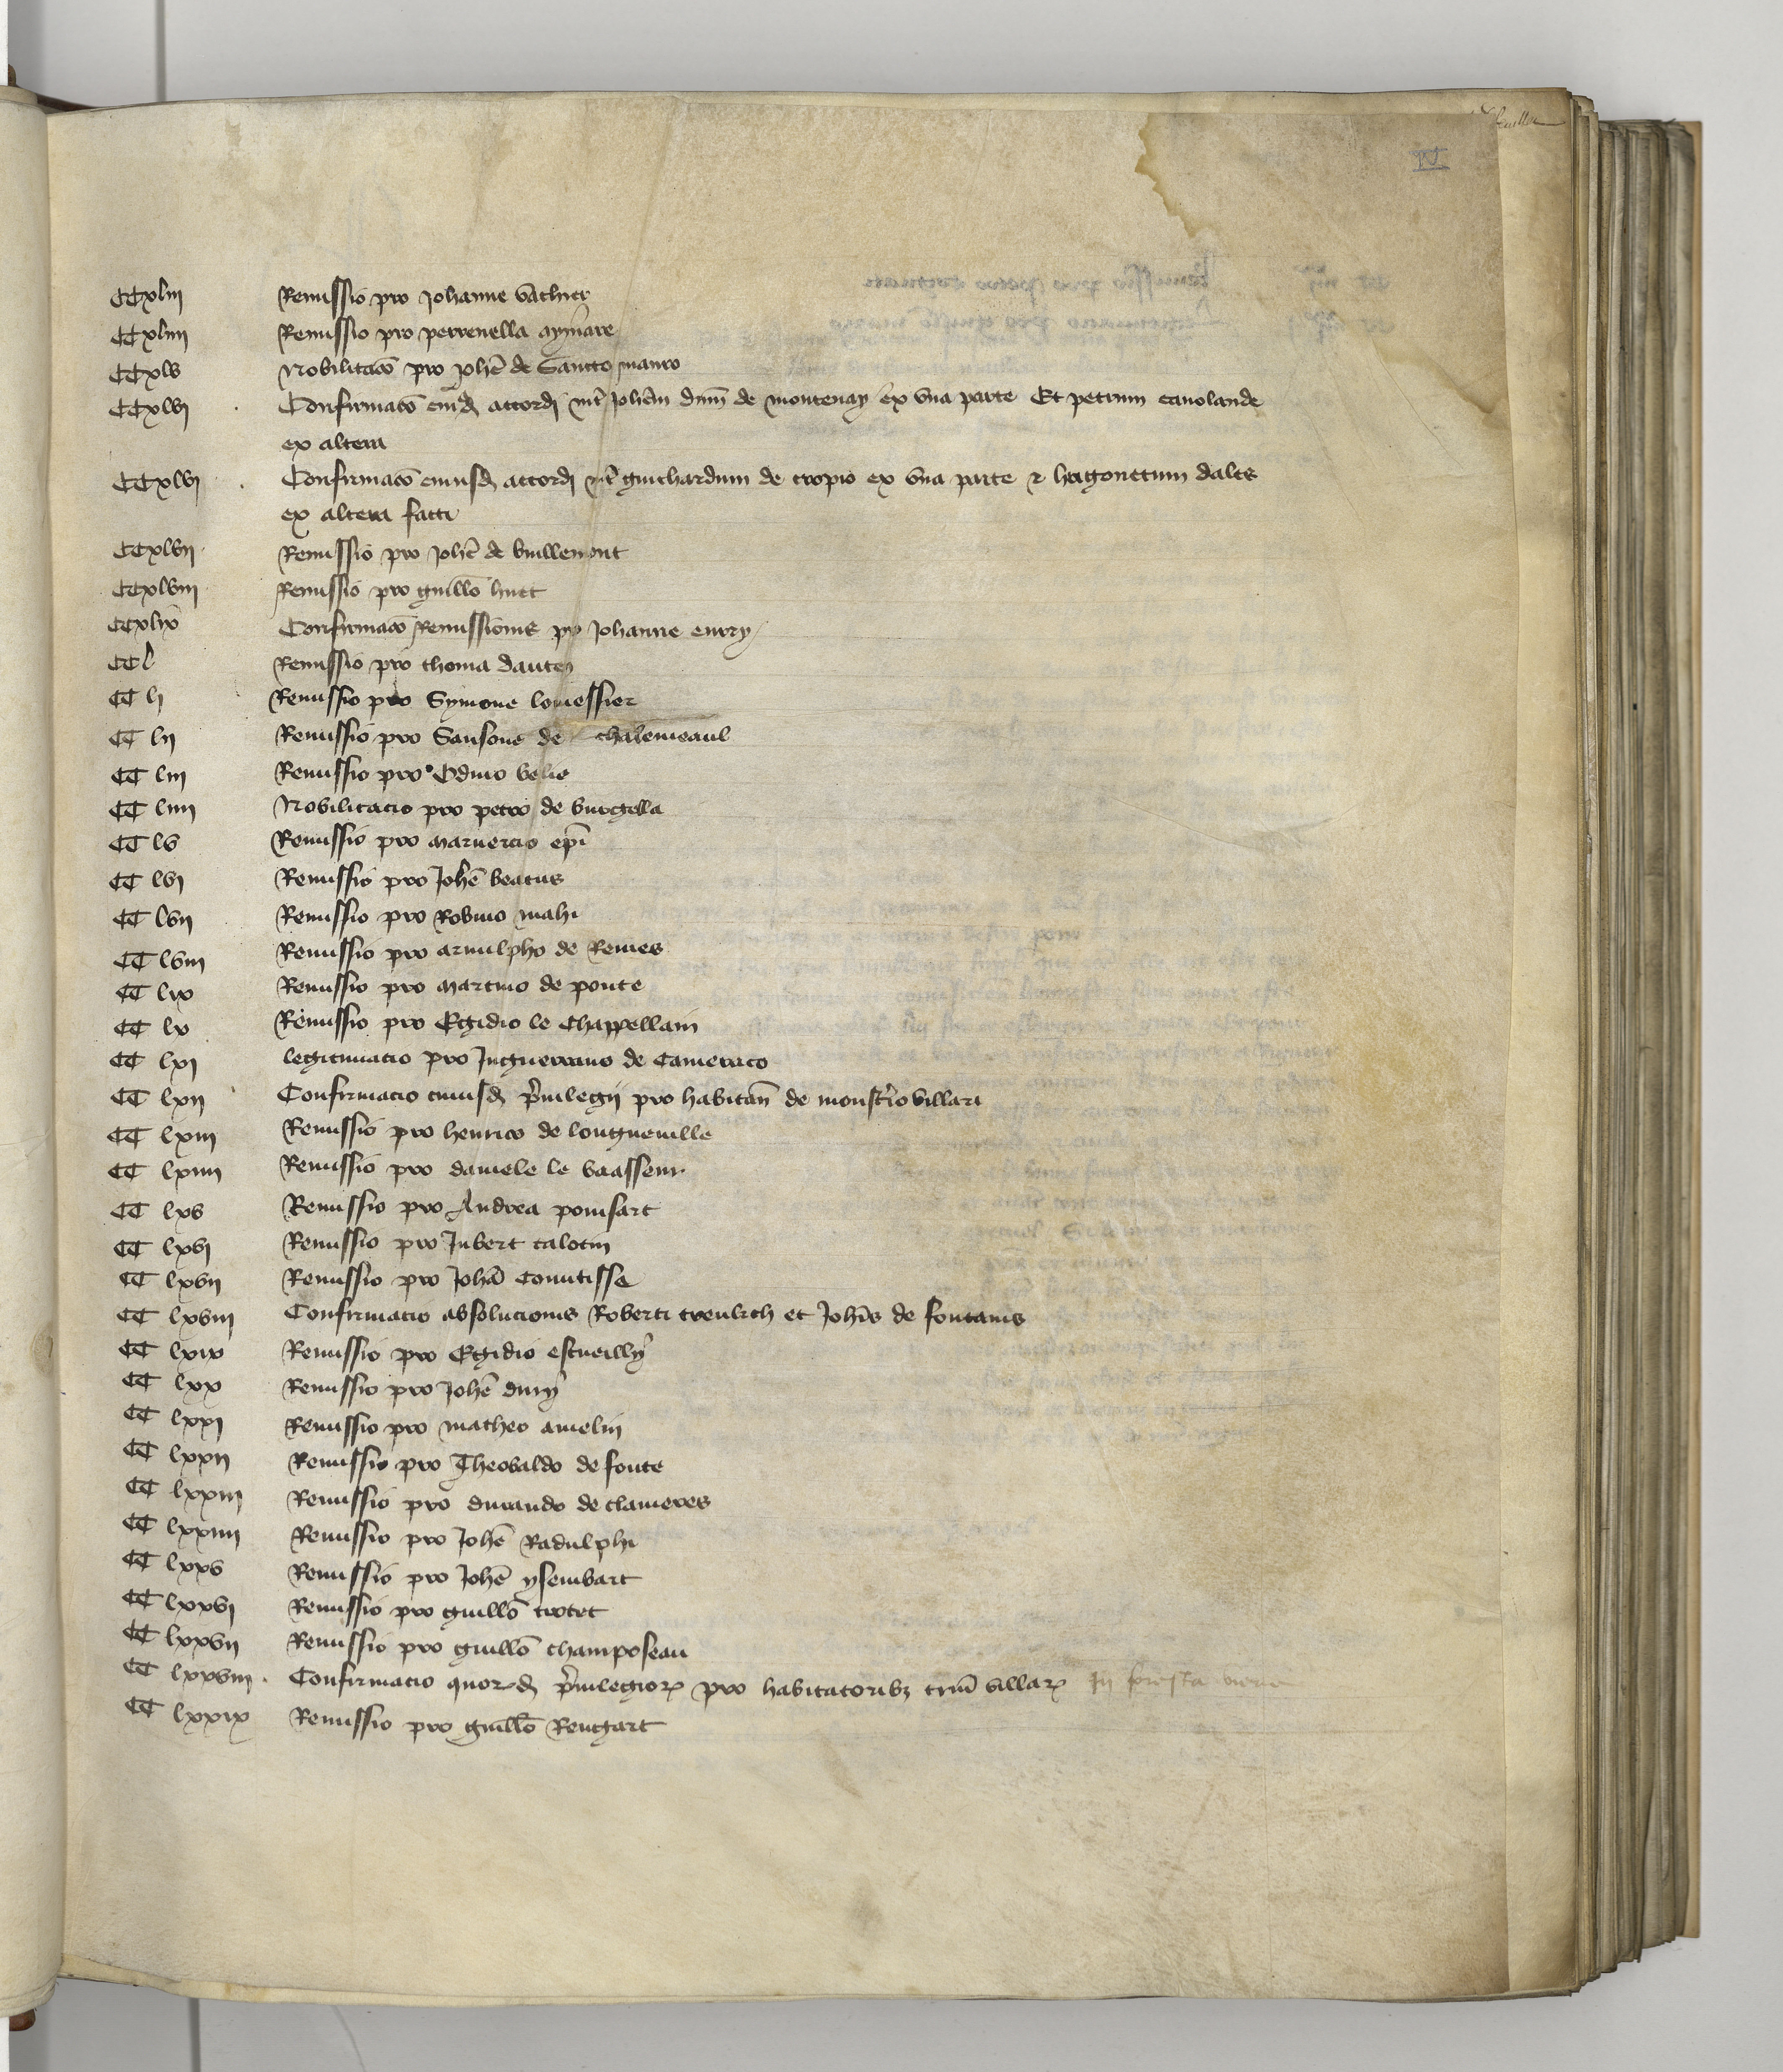 IV
CCxliii Remissio pro Johanne
CCxliiii Remissio pro perrenella aymare
CCxlv Nobilitacō pro Johē de Sancto mauro
CCxlvi Confirmacō cuiꝰd accordi int̄ Johēm dn̄m de montenay ex vna parte Et petrum canolande
ex altera
CCxlvi Confirmacō cuiusd accordi int̄ guichardum de tropio ex vna parte ⁊ hugonetum dales
ex altera facti
CCxlvii Remissio pro Johē de vuillemont
CCxlviii Remissio pro guillō huet
CCxlix Confirmacō Remissionis pro Johanne eury
CC l Remissio pro thoma
CC li Remissio pro Symone louessier
CC lii Remissio pro Sansone de chalemeaul
CC liii Remissio pro Odino velie
CC liiii Nobilitacio pro petro de vurgella
CC lv Remissio pro ep̄i
CC lvi Remissio pro Johē beatus
CC lvii Remissio pro Robino mahi
CC lviii Remissio pro arnulpho de Remes
CC lix Remissio pro martino de ponte
CC lx Remissio pro Egidio le Chappellain
CC lxi legitimacio pro Inguerrano de Cameraco
CC lxii Confirmacio cuiusd p̄uilegii pro habitan̄ de monst̄iovillari
CC lxiii Remissio pro henrico de longueuille
CC lxiiii Remissio pro daniele le vaasseur
CC lxv Remissio pro Andrea ponsart
CC lxvi Remissio pro Jubert calotin
CC lxvii Remissio pro Johā Conutisse
CC lxviii Confirmacio absolucionis Roberti treulech et Joh̄is de fontanis
CC lxix Remissio pro Egidio escueilly
CC lxx Remissio pro Johē dury
CC lxxi Remissio pro matheo amelin
CC lxxii Remissio pro Theobaldo de fonte
CC lxxiii Remissio pro durando de clameres
CC lxxiiii Remissio pro Johē Radulphi
CC lxxv Remissio pro Johē ysembart
CC lxxvi Remissio pro guillō trotet
CC lxxvii Remissio pro guillō champoseau
CC lxxviii Confirmacio quord p̄uilegioꝝ pro habitatoribꝫ triū villaꝝ In foresta
CC lxxix Remissio pro guillō Rengart